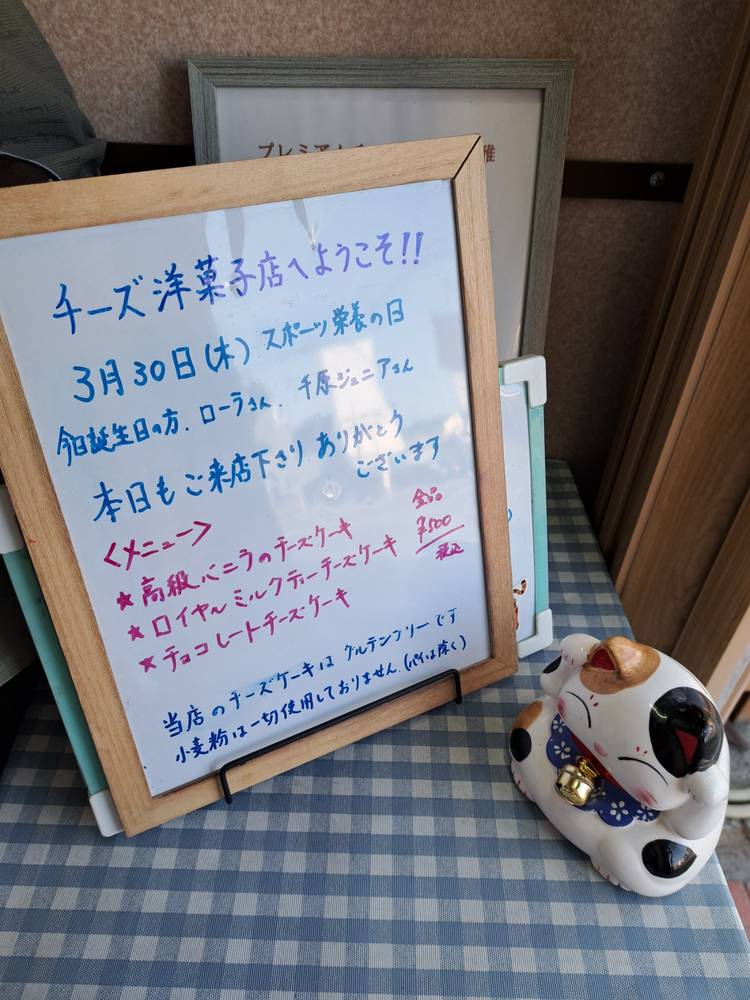 プレミアム
雅
チーズ洋菓子店へようこそ!!
3月30日(木) スポーツ栄養の日
今日誕生日の方、ローラさん、千原ジュニアさん
本日もご来店下さり ありがとう
ございます
<メニュー>
★高級バニラのチーズケーキ
★ロイヤルミルクティーチーズケーキ
★チョコレートチーズケーキ
全品
¥500
税込
当店のチーズケーキはグルテンフリーです
小麦粉は一切使用しておりません。(パイは除く)